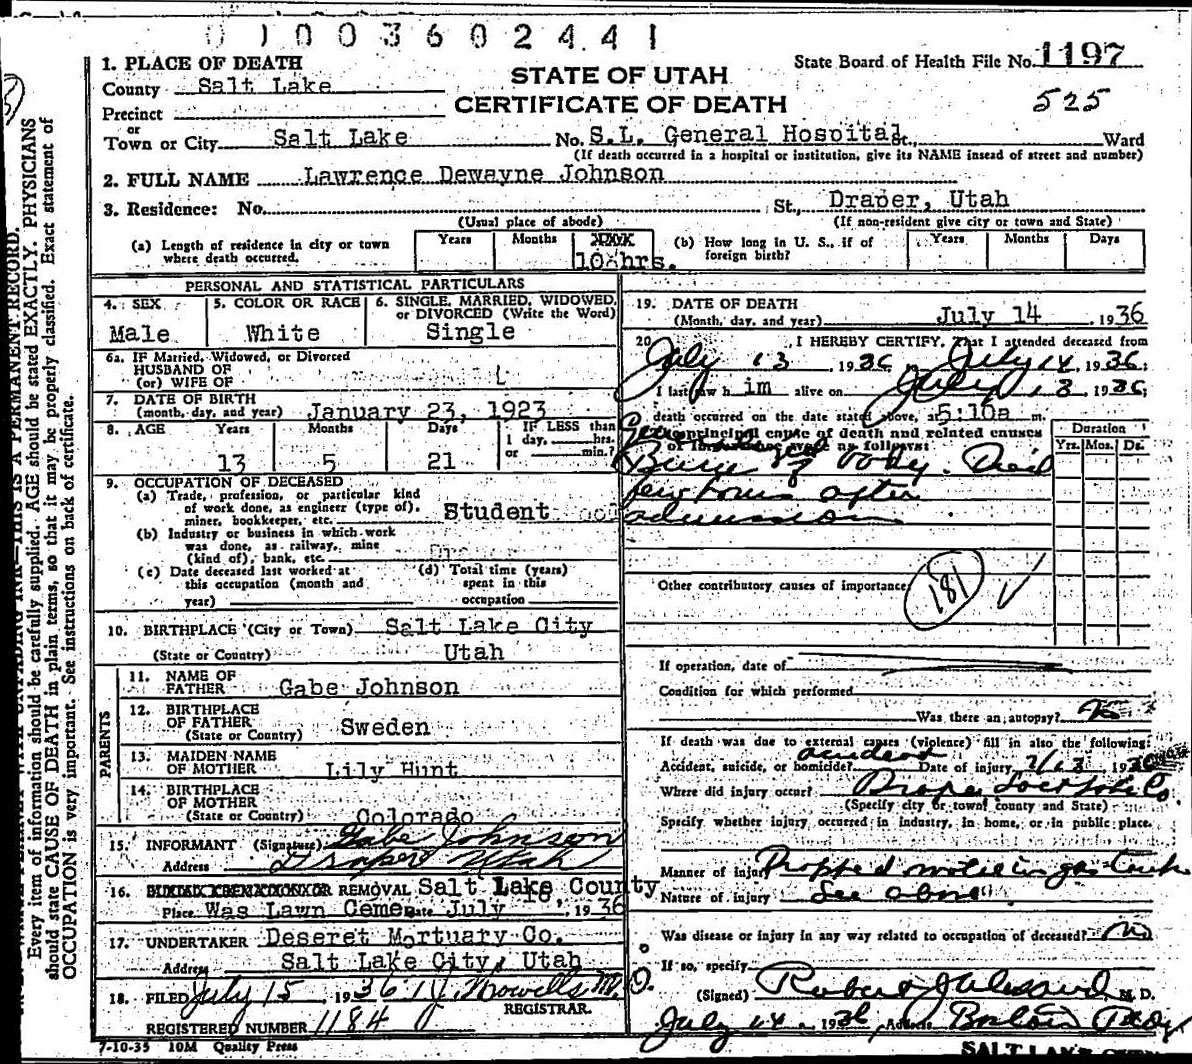 0 1 0 0 3 6 0 2 4 4 1
1. PLACE OF DEATH
County Salt Lake
Precinct
or
Town or City Salt Lake No. S.L. General Hospital St., Ward
(If death occurred in a hospital or institution, give its NAME insead of street and number)
STATE OF UTAH
CERTIFICATE OF DEATH
State Board of Health File No. 1197
525
2. FULL NAME Lawrence Dewayne Johnson
3. Residence: No. St., Draper, Utah
(Usual place of abode) (If non-resident give city or town and State)
(a) Length of residence in city or town where death occurred. Years Months 10½hrs.
(b) How long in U. S., if of foreign birth? Years Months Days
PERSONAL AND STATISTICAL PARTICULARS
4. SEX Male
5. COLOR OR RACE White
6. SINGLE, MARRIED, WIDOWED, or DIVORCED (Write the Word) Single
6a. IF Married, Widowed, or Divorced
HUSBAND OF
(or) WIFE OF
7. DATE OF BIRTH
(month, day, and year) January 23, 1923
8. AGE Years 13 Months 5 Days 21
IF LESS than
1 day, hrs.
or min.?
9. OCCUPATION OF DECEASED
(a) Trade, profession, or particular kind of work done, as engineer (type of), miner, bookkeeper, etc. Student
(b) Industry or business in which work was done, as railway, mine (kind of), bank, etc.
(c) Date deceased last worked at this occupation (month and year)
(d) Total time (years) spent in this occupation
10. BIRTHPLACE (City or Town) Salt Lake City
(State or Country) Utah
PARENTS
11. NAME OF FATHER Gabe Johnson
12. BIRTHPLACE OF FATHER (State or Country) Sweden
13. MAIDEN NAME OF MOTHER Lily Hunt
14. BIRTHPLACE OF MOTHER (State or Country) Colorado
15. INFORMANT (Signature) Gabe Johnson
Address Draper Utah
16. REMOVAL Salt Lake County
Place Was Lawn Ceme Date July 16, 1936
17. UNDERTAKER Deseret Mortuary Co.
Address Salt Lake City, Utah
18. FILED July 15, 1936 M.D.
REGISTRAR.
REGISTERED NUMBER 1184
7-10-35 10M Quality Press
19. DATE OF DEATH
(Month, day, and year) July 14, 1936
20. I HEREBY CERTIFY, That I attended deceased from
July 13 1936 July 14 1936;
I last saw him alive on July 13 1936;
death occurred on the date stated above, at 5:10a m.
The principal cause of death and related causes of importance were as follows:
Burn of body. Died
few hours after
admission
Duration
Yrs. Mos. Ds.
Other contributory causes of importance
181
If operation, date of
Condition for which performed
Was there an autopsy? No
If death was due to external causes (violence) fill in also the following:
Accident, suicide, or homicide? accident Date of injury 7/13 1936
Where did injury occur? Draper Salt Lake Co
(Specify city or town, county and State)
Specify whether injury occurred in industry, in home, or in public place.
Manner of injury Dropped match in gas tank
Nature of injury See above
Was disease or injury in any way related to occupation of deceased? No
If so, specify
(Signed) Robert M. D.
July 14 1936 Address
SALT LAKE
Every item of information should be carefully supplied. AGE should be stated EXACTLY. PHYSICIANS
should state CAUSE OF DEATH in plain terms, so that it may be properly classified. Exact statement of
OCCUPATION is very important. See instructions on back of certificate.
THIS IS A PERMANENT RECORD.